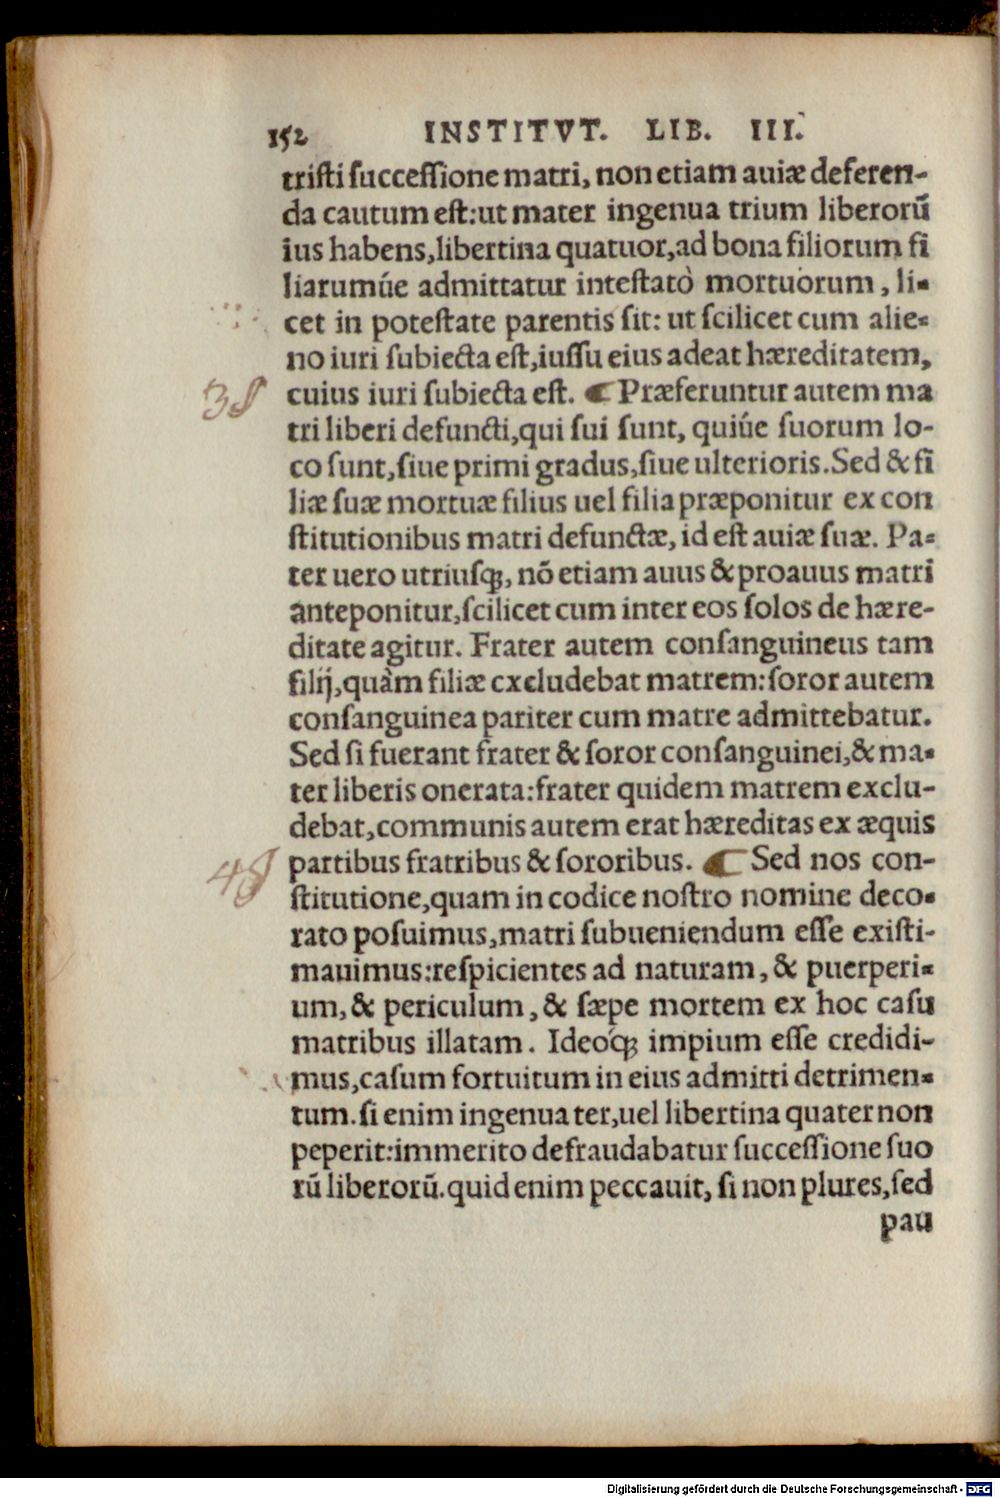 152 INSTITVT. LIB. III.
tristi successione matri, non etiam auiæ deferen-
da cautum est: ut mater ingenua trium liberorũ
ius habens, libertina quatuor, ad bona filiorum fi
liarumúe admittatur intestatò mortuorum, li-
cet in potestate parentis sit: ut scilicet cum alie-
no iuri subiecta est, iussu eius adeat hæreditatem,
38 cuius iuri subiecta est. ☛ Præferuntur autem ma
tri liberi defuncti, qui sui sunt, quiúe suorum lo-
co sunt, siue primi gradus, siue ulterioris. Sed & fi
liæ suæ mortuæ filius uel filia præponitur ex con
stitutionibus matri defunctæ, id est auiæ suæ. Pa-
ter uero utriusq;, nõ etiam auus & proauus matri
anteponitur, scilicet cum inter eos solos de hære-
ditate agitur. Frater autem consanguineus tam
filij, quàm filiæ excludebat matrem: soror autem
consanguinea pariter cum matre admittebatur.
Sed si fuerant frater & soror consanguinei, & ma-
ter liberis onerata: frater quidem matrem exclu-
debat, communis autem erat hæreditas ex æquis
48 partibus fratribus & sororibus. ☛ Sed nos con-
stitutione, quam in codice nostro nomine deco-
rato posuimus, matri subueniendum esse existi-
mauimus: respicientes ad naturam, & puerperi-
um, & periculum, & sæpe mortem ex hoc casu
matribus illatam. Ideoq́; impium esse credidi-
mus, casum fortuitum in eius admitti detrimen-
tum. si enim ingenua ter, uel libertina quater non
peperit: immerito defraudabatur successione suo
rũ liberorũ. quid enim peccauit, si non plures, sed
pau
Digitalisierung gefördert durch die Deutsche Forschungsgemeinschaft - DFG